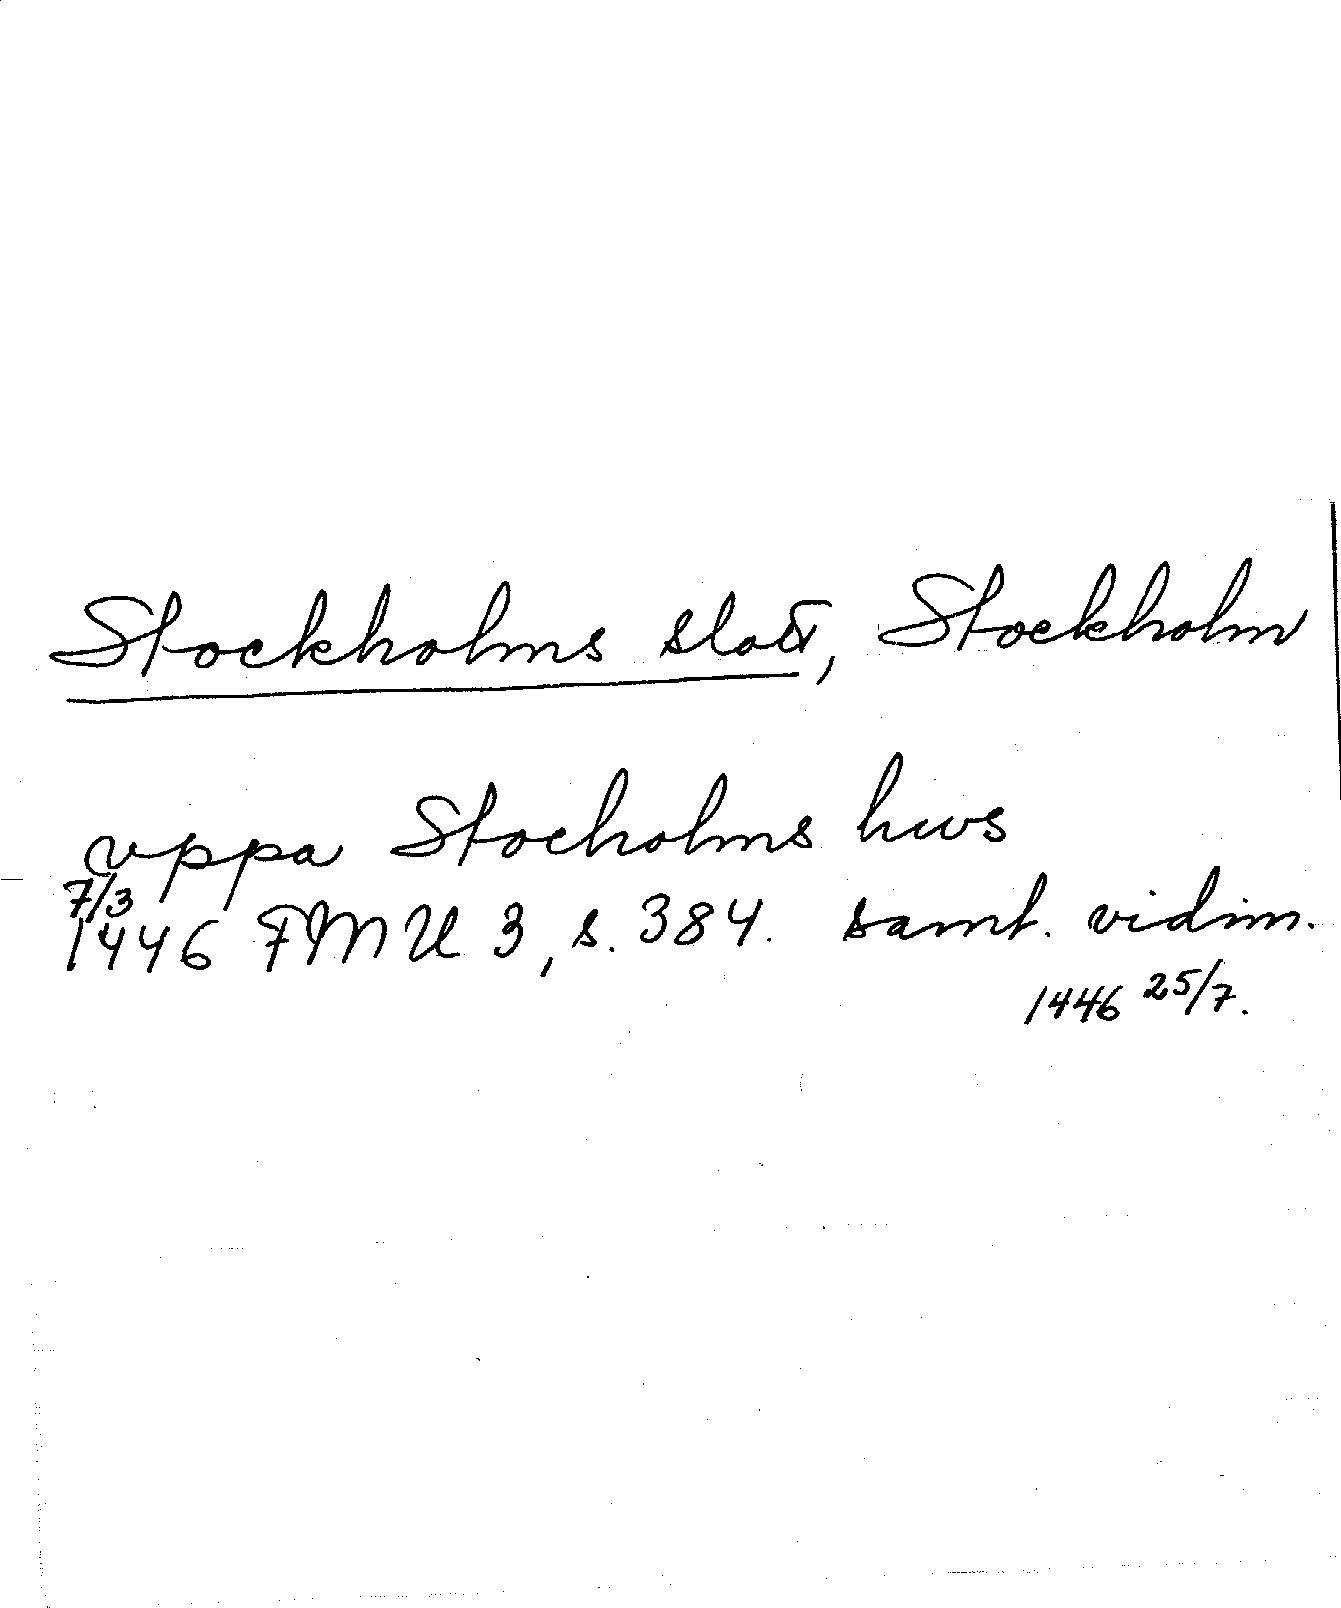 Stockholms slott, Stockholm
vppa Stocholms hws
7/3
1446 FMU 3, s. 384. samt. vidim.
1446 25/7.